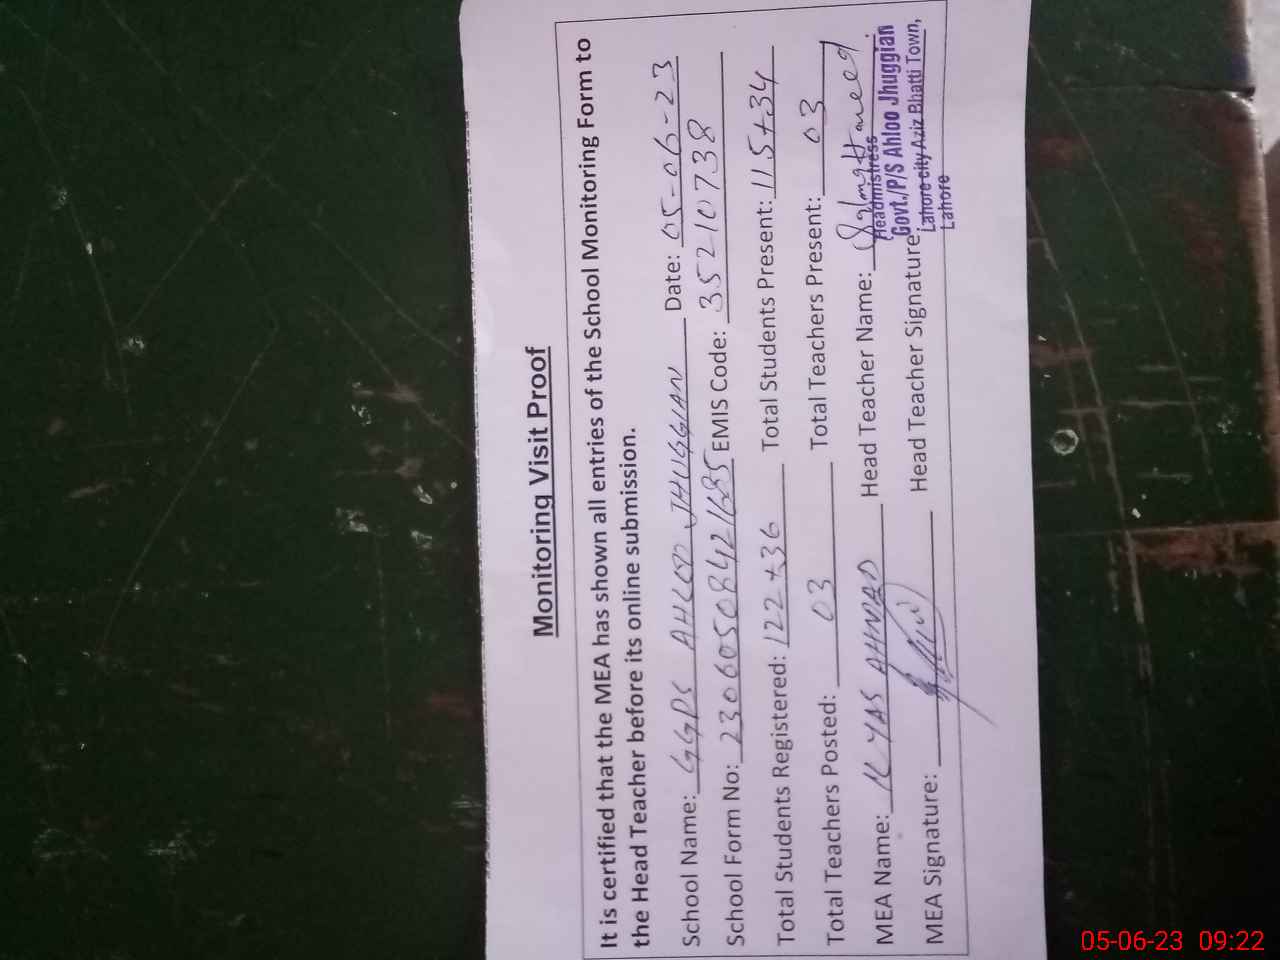 Monitoring Visit Proof
It is certified that the MEA has shown all entries of the School Monitoring Form to
the Head Teacher before its online submission.
School Name: GGPS AHLOO JHUGGIAN Date: 05-06-23
School Form No: 23060508421685 EMIS Code: 35210738
Total Students Registered: 122+36 Total Students Present: 115+34
Total Teachers Posted: 03 Total Teachers Present: 03
MEA Name: ILYAS AHMAD Head Teacher Name:
Headmistress
Govt./P/S Ahloo Jhuggian
MEA Signature: Head Teacher Signature
Lahore city Aziz Bhatti Town,
Lahore
05-06-23 09:22